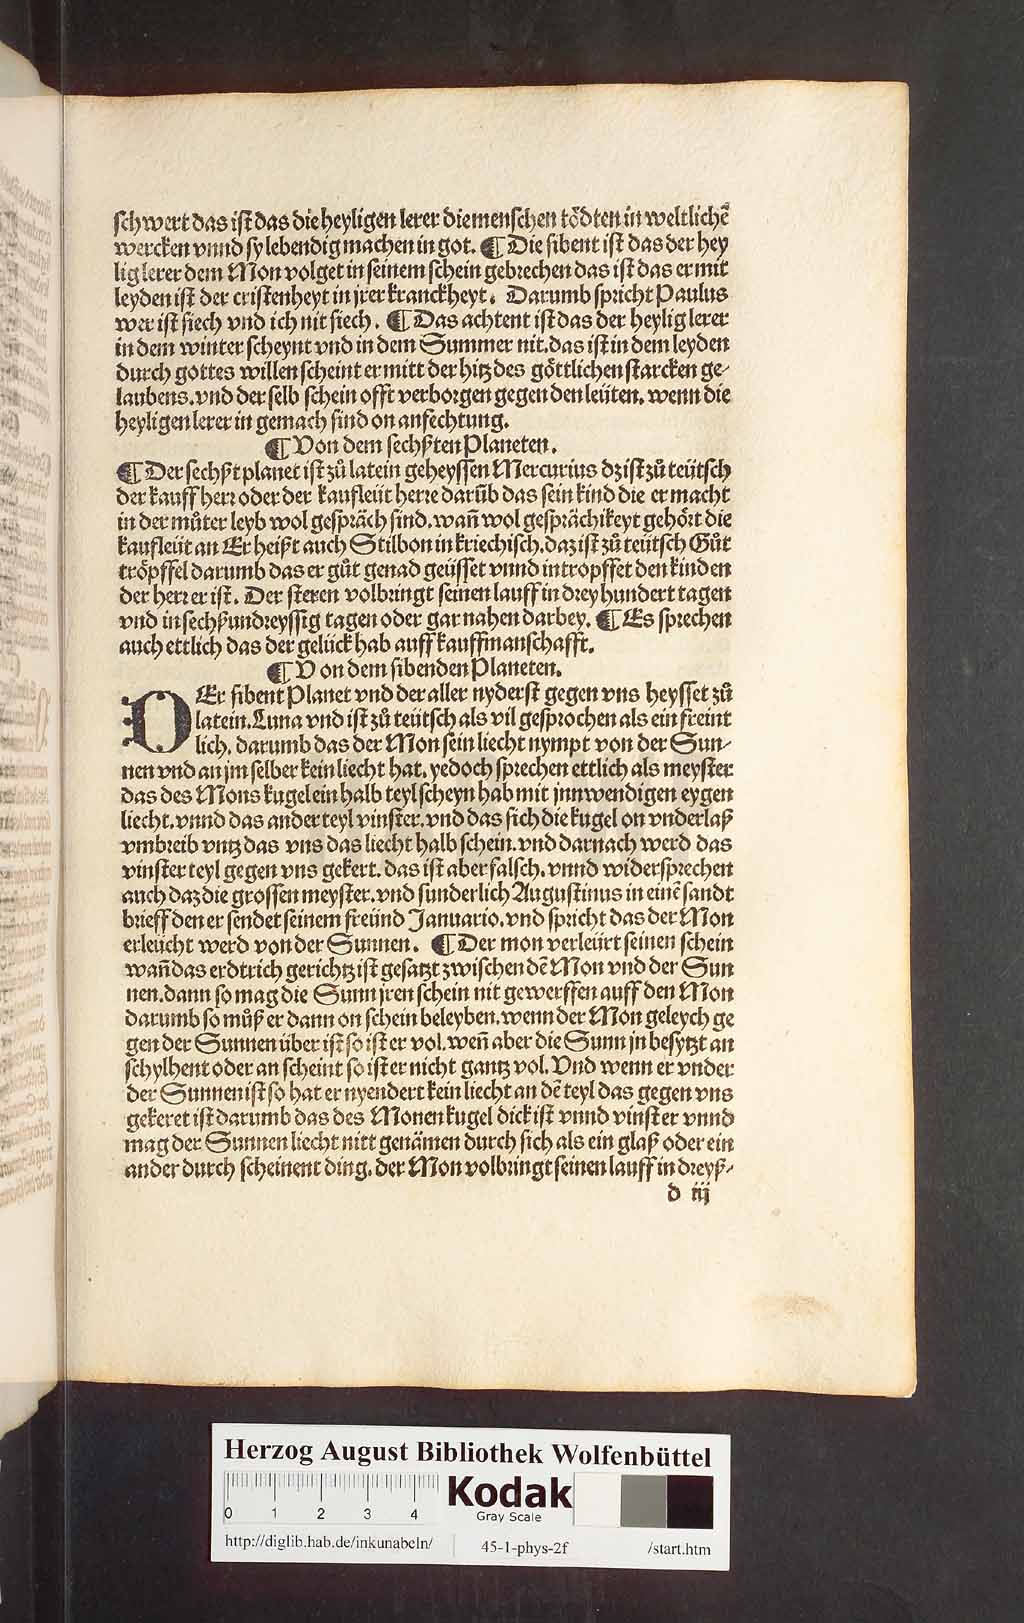 schwert das ist das die heyligen lerer die menschen tödten in weltlichē
wercken vnnd sy lebendig machen in got. ¶ Die sibent ist das der hey
lig lerer dem Mon volget in seinem schein gebrechen das ist das er mit
leyden ist der cristenheyt in jrer kranckheyt. Darumb spricht Paulus
wer ist siech vnd ich nit siech. ¶ Das achtent ist das der heylig lerer
in dem winter scheynt vnd in dem Summer nit. das ist in dem leyden
durch gottes willen scheint er mitt der hitz des göttlichen starcken ge-
laubens. vnd der selb schein offt verborgen gegen den leüten. wenn die
heyligen lerer in gemach sind on anfechtung.
¶ Von dem sechßten Planeten.
¶ Der sechßt planet ist zů latein geheyssen Mercurius dz ist zů teütsch
der kauff herr oder der kaufleüt herre darūb das sein kind die er macht
in der můter leyb wol gespräch sind. wañ wol gesprächikeyt gehört die
kaufleüt an Er heißt auch Stilbon in kriechisch. daz ist zů teütsch Gůt
tröpffel darumb das er gůt genad geüsset vnnd intropffet den kinden
der herr er ist. Der steren volbringt seinen lauff in drey hundert tagen
vnd in sechßundreyssig tagen oder gar nahen darbey. ¶ Es sprechen
auch ettlich das der gelück hab auff kauffmanschafft.
¶ Von dem sibenden Planeten.
DEr sibent Planet vnd der aller nyderst gegen vns heysset zů
latein. Luna vnd ist zů teütsch als vil gesprochen als ein freint
lich. darumb das der Mon sein liecht nympt von der Sun-
nen vnd an jm selber kein liecht hat. yedoch sprechen ettlich als meyster
das des Mons kugel ein halb teyl scheyn hab mit jnnwendigen eygen
liecht. vnnd das ander teyl vinster. vnd das sich die kugel on vnderlaß
vmbreib vntz das vns das liecht halb schein. vnd darnach werd das
vinster teyl gegen vns gekert. das ist aber falsch. vnnd widersprechen
auch daz die grossen meyster. vnd sunderlich Augustinus in einē sandt
brieff den er sendet seinem freünd Januario. vnd spricht das der Mon
erleücht werd von der Sunnen. ¶ Der mon verleürt seinen schein
wañ das erdtrich gerichtz ist gesatzt zwischen dē Mon vnd der Sun
nen. dann so mag die Sunn jren schein nit gewerffen auff den Mon
darumb so můß er dann on schein beleyben. wenn der Mon geleych ge
gen der Sunnen über ist so ist er vol. weñ aber die Sunn jn besytzt an
schylhent oder an scheint so ist er nicht gantz vol. Vnd wenn er vnder
der Sunnen ist so hat er nyendert kein liecht an dē teyl das gegen vns
gekeret ist darumb das des Monen kugel dick ist vnnd vinster vnnd
mag der Sunnen liecht nitt genämen durch sich als ein glaß oder ein
ander durch scheinent ding. der Mon volbringt seinen lauff in dreyß-
d iij
Herzog August Bibliothek Wolfenbüttel
0 1 2 3 4
Kodak
Gray Scale
http://diglib.hab.de/inkunabeln/ 45-1-phys-2f /start.htm